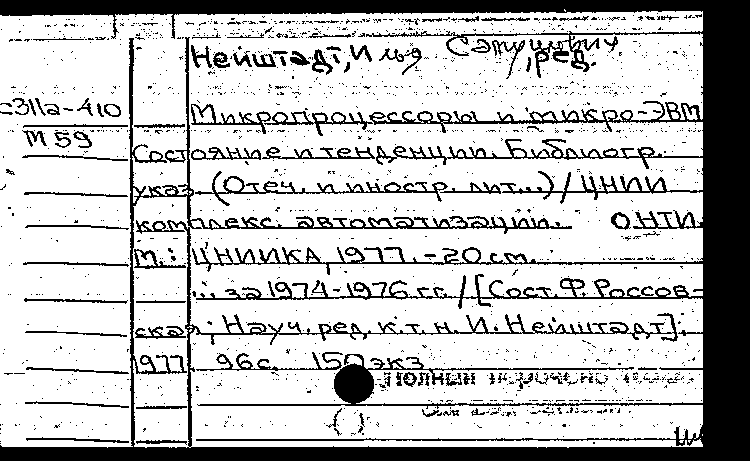 Нейштадт, Илья
, ред.
с311а-410
М 59
Микропроцессоры и микро-ЭВМ
Состояние и тенденции. Библиогр.
указ. (Отеч. и иностр. лит...) / ЦНИИ
комплекс. автоматизации. ОНТИ.
М.: ЦНИИКА, 1977. - 20 см.
... за 1974-1976 гг. / [Сост. Ф. Россов-
ская; Науч. ред. к.т.н. И. Нейштадт].
1977 96с. 150 экз
Полный